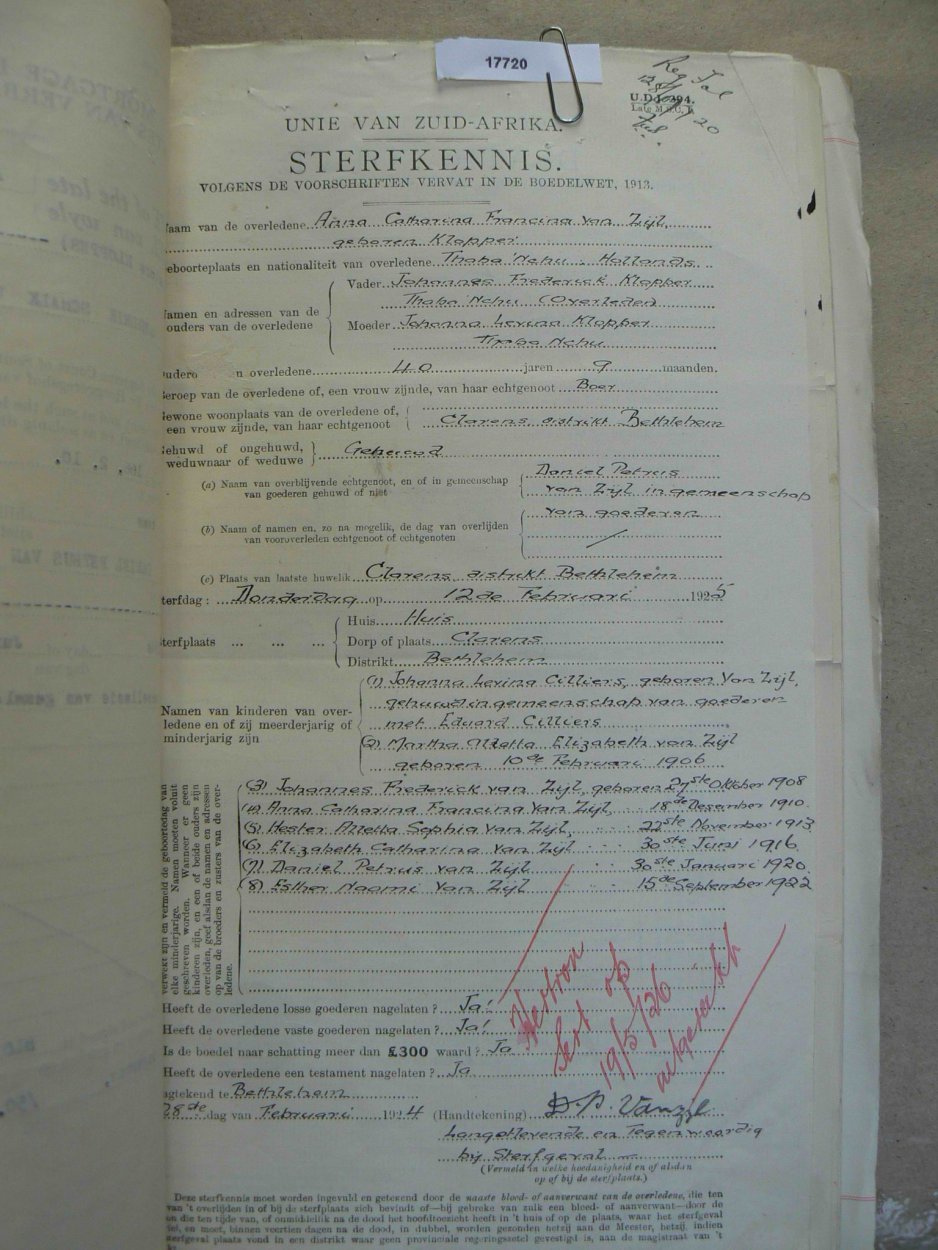 17720
U.D.
Late M.S.C.
UNIE VAN ZUID-AFRIKA.
STERFKENNIS.
VOLGENS DE VOORSCHRIFTEN VERVAT IN DE BOEDELWET, 1913.
aam van de overledene Anna Catharina Francina van Zijl,
geboren Klopper
eboorteplaats en nationaliteit van overledene Thaba 'Nchu. Hollands
Vader Johannes Frederick Klopper
Thaba Nchu (Overleden)
amen en adressen van de ouders van de overledene
Moeder Johanna Levina Klopper
Thaba Nchu
udero n overledene 40 jaren 9 maanden.
eroep van de overledene of, een vrouw zijnde, van haar echtgenoot Boer
ewone woonplaats van de overledene of,
een vrouw zijnde, van haar echtgenoot Clarens distrikt Bethlehem
ehuwd of ongehuwd,
weduwnaar of weduwe Gehuwd
(a) Naam van overblijvende echtgenoot, en of in gemeenschap Daniel Petrus
van goederen gehuwd of niet van Zijl in gemeenschap
van goederen
(b) Naam of namen en, zo na mogelik, de dag van overlijden
van vooroverleden echtgenoot of echtgenoten
(c) Plaats van laatste huwelik Clarens distrikt Bethlehem
terfdag: Donderdag op 12de Februari 1925
Huis Huis
terfplaats ... ... ... Dorp of plaats Clarens
Distrikt Bethlehem
(1) Johanna Levina Cilliers, geboren Van Zijl,
Namen van kinderen van over- gehuwd in gemeenschap van goederen
ledene en of zij meerderjarig of met Eduard Cilliers
minderjarig zijn
(2) Martha Aletta Elizabeth van Zijl
geboren 10de Februari 1906
verwekt zijn en vermeld de geboortedag van
elke minderjarige. Namen moeten voluit
geschreven worden. Wanneer er geen
kinderen zijn, en een of beide ouders zijn
overleden, geef alsdan de namen en adressen
op van de broeders en zusters van de over-
ledene.
(3) Johannes Frederick van Zijl, geboren 27ste Oktober 1908
(4) Anna Catharina Francina van Zijl 18de Desember 1910
(5) Hester Aletta Sophia Van Zijl, 22ste November 1913
(6) Elizabeth Catharina Van Zijl 30ste Juni 1916
(7) Daniel Petrus van Zijl 30ste Januari 1920
(8) Esther Naomi Van Zijl 15de September 1922
Heeft de overledene losse goederen nagelaten? Ja!
Heeft de overledene vaste goederen nagelaten? Ja!
Is de boedel naar schatting meer dan £300 waard? Ja
Heeft de overledene een testament nagelaten? Ja
op
19/5/26
agtekend te Bethlehem
28ste dag van Februari 1924 (Handtekening) D. P. Vanzyl
Langstlevende en Tegenwoordig
bij Sterfgeval
(Vermeld in welke hoedanigheid en of alsdan
op of bij de sterfplaats.)
Deze sterfkennis moet worden ingevuld en getekend door de naaste bloed- of aanverwant van de overledene, die ten
van 't overlijden in of bij de sterfplaats zich bevindt of—bij gebreke van zulk een bloed- of aanverwant—door de
on die ten tijde van, of onmiddellik na de dood het hoofdtoezicht heeft in 't huis of op de plaats, waar het sterfgeval
iel, en moet, binnen veertien dagen na de dood, in dubbel, worden gezonden hetzij aan de Meester, hetzij, indien
terfgeval plaats vond in een distrikt waar geen provinciale regeringszetel gevestigd is, aan de magistraat van 't